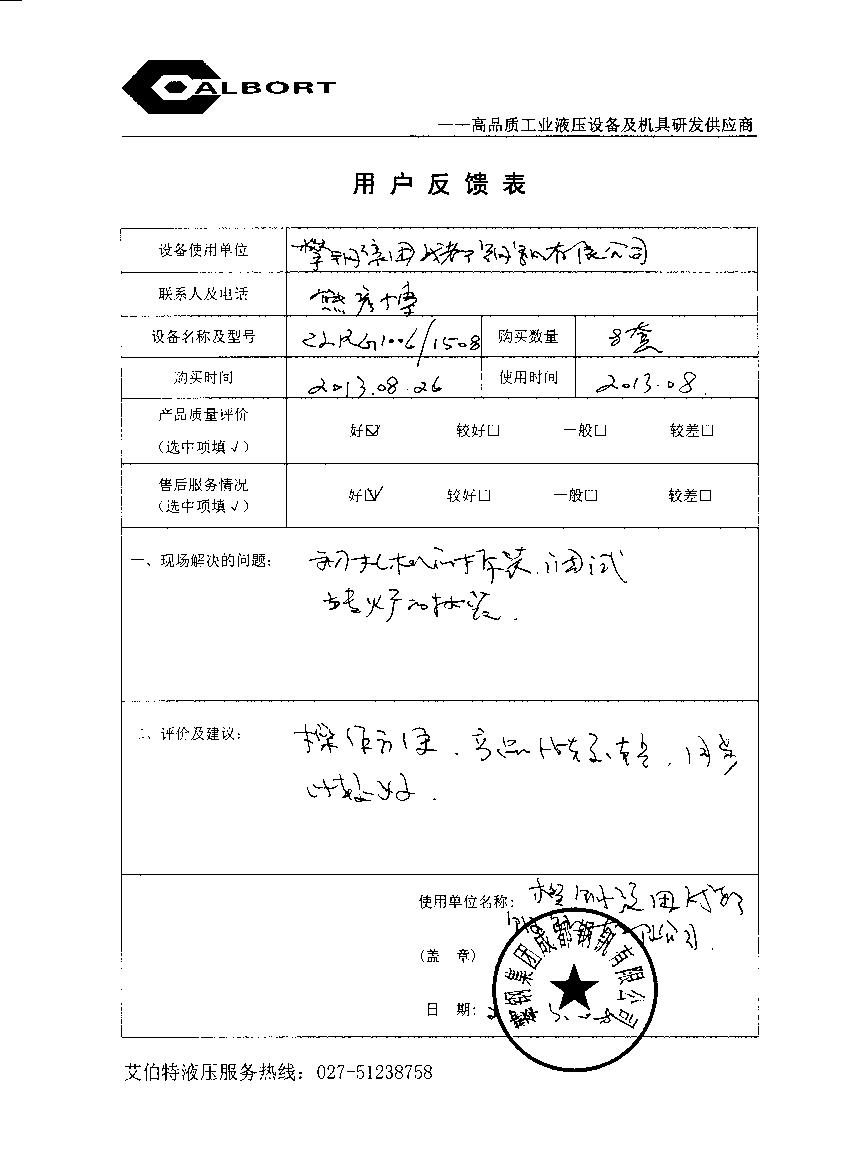 ALBORT
——高品质工业液压设备及机具研发供应商
用户反馈表
设备使用单位 攀钢集团成都钢钒有限公司
联系人及电话 熊彦博
设备名称及型号 1006/1508 购买数量 8套
购买时间 2013.08.26 使用时间 2013.08.
产品质量评价
(选中项填√) 好☑ 较好□ 一般□ 较差□
售后服务情况
(选中项填√) 好☑ 较好□ 一般□ 较差□
一、现场解决的问题: 拆装、调试
二、评价及建议: 操作方便、产品
使用单位名称: 集团成都
有限公司
(盖 章)
日 期:
攀钢集团成都钢钒有限公司
艾伯特液压服务热线: 027-51238758